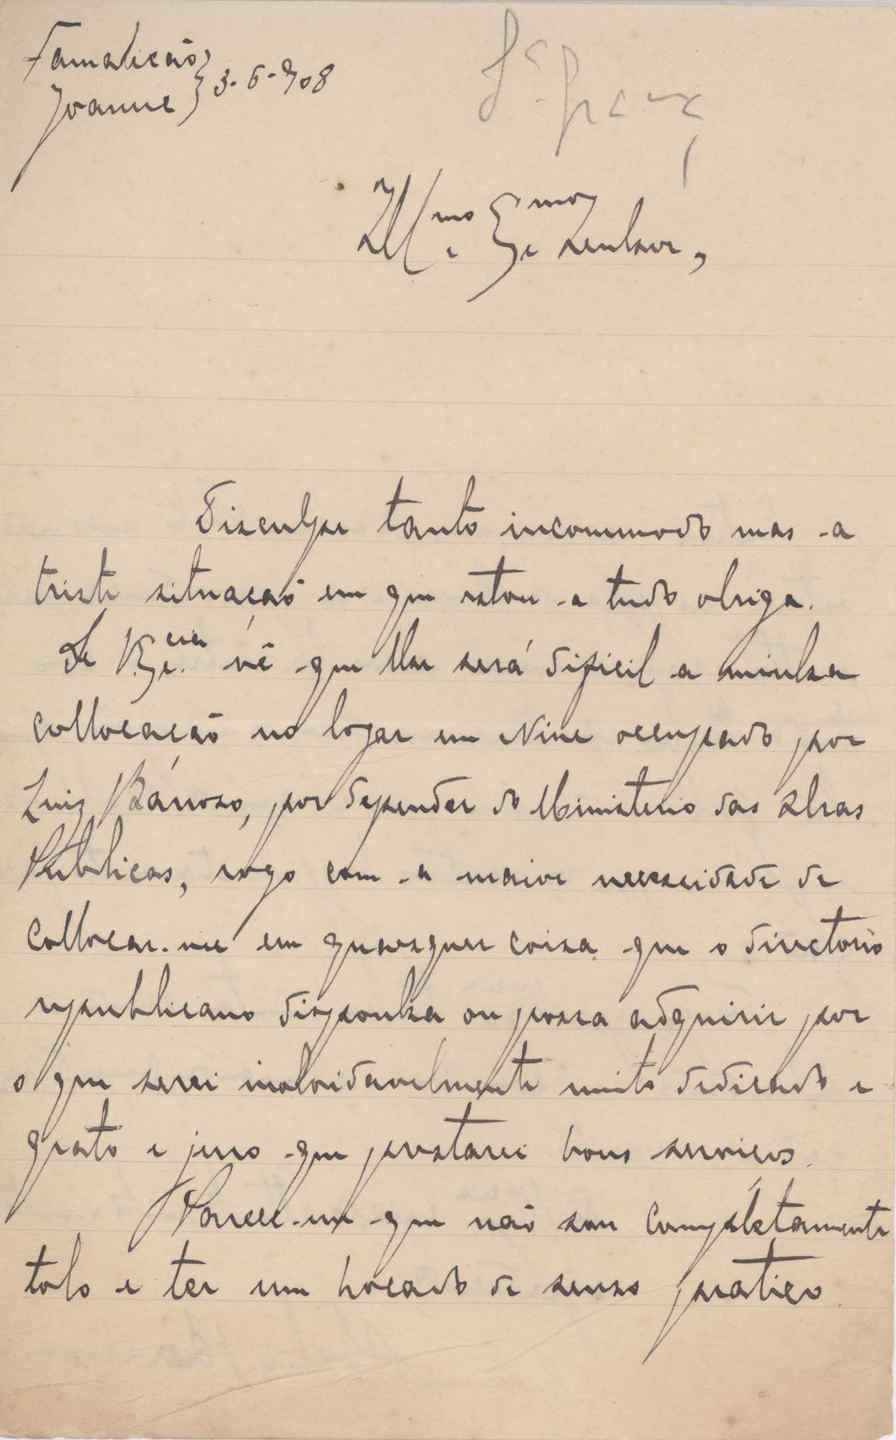 Famalicão
Joanne } 3-6-908
Ill.mo e Ex.mo Senhor,
Disculpe tanto incommodo mas a
triste situação em que estou a tudo obriga.
Se V. Ex.cia vê que lhe será dificil a minha
collocação no logar em Nine occupado por
Luiz Barroso, por depender do Ministerio das Obras
Publicas, rogo com a maior necessidade de
collocar-me em quasquer coisa que o directorio
republicano disponha ou possa adquirir por
o que serei inolvidavelmente muito dedicado e
grato e juro que prestarei bons serviços.
Parece-me que não sou completamente
tolo e ter um bocado de senso pratico